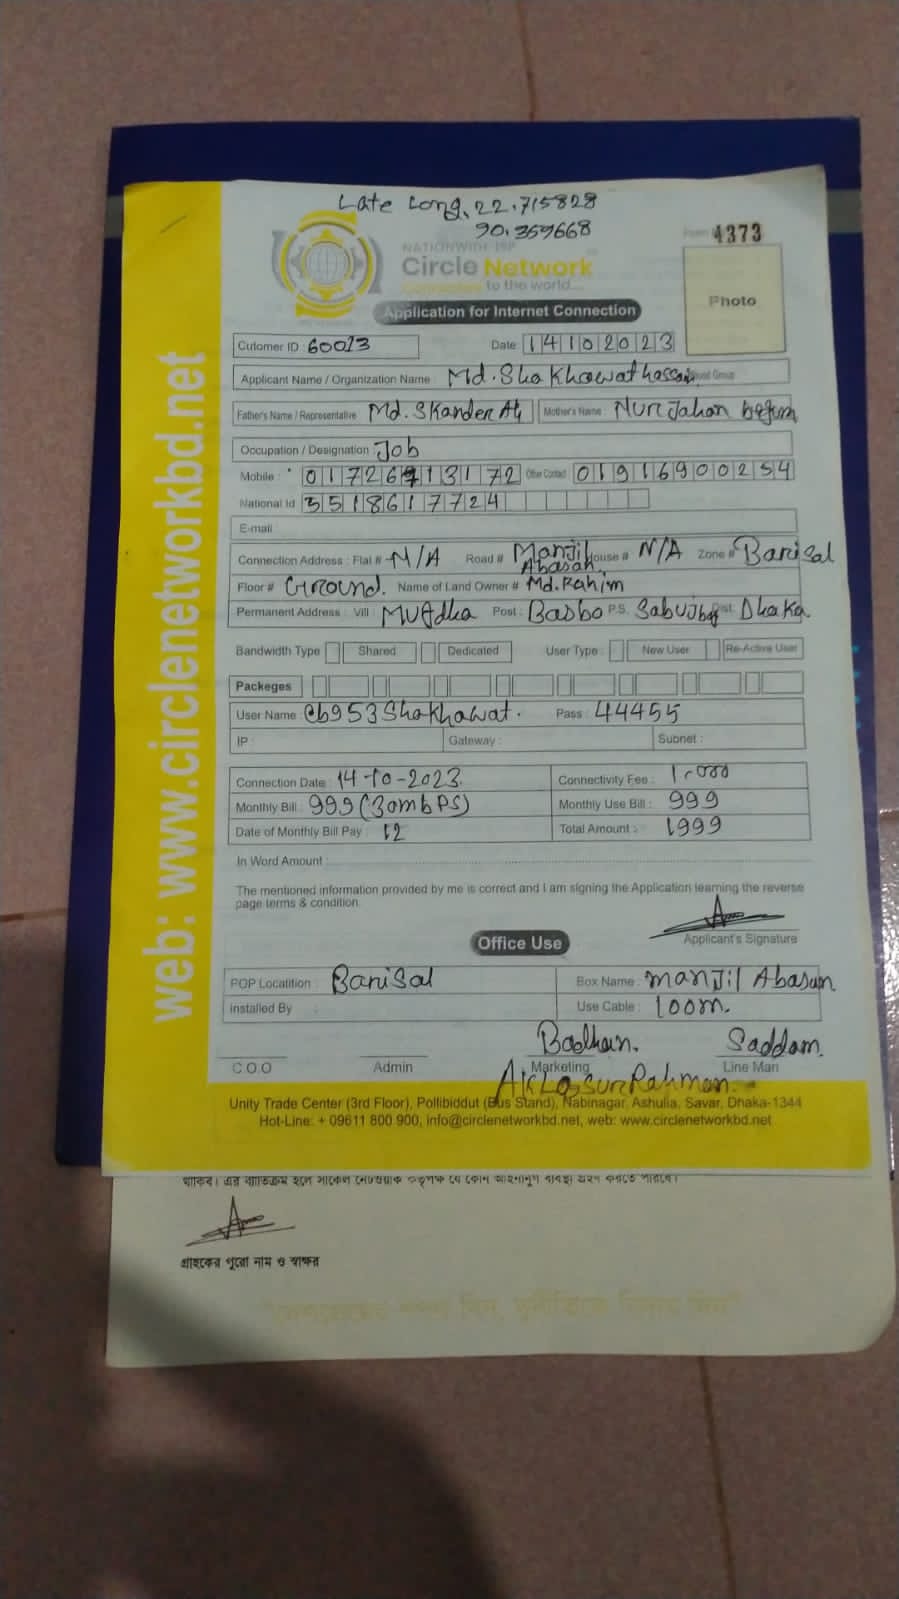 Late Long, 22.715828
90.359668
Form 4373
NATIONWIDE ISP
Circle Network
to the world...
Application for Internet Connection
Photo
Cutomer ID : 60013 Date : 14102023
Applicant Name / Organization Name : Md. Shakhawat hossain
Father's Name / Representative Md. Skander Ali Mother's Name : Nur Jahan begum
Occupation / Designation : Job
Mobile : 01726713172 Other Contact 01916900254
National Id 3518617724
E-mail
Connection Address : Flat # N/A Road # Manjil Abasan. House # N/A Zone # Barisal
Floor # Ground. Name of Land Owner # Md. Rahim
Permanent Address : Vill : Post : Basbo P.S. Dist. Dhaka
Bandwidth Type Shared Dedicated User Type : New User Re-Active User
Packeges
User Name : cb953Shakhawat. Pass : 44455
IP : Gateway : Subnet :
Connection Date : 14-10-2023. Connectivity Fee : 1,000
Monthly Bill : 999 (30mbPS) Monthly Use Bill : 999
Date of Monthly Bill Pay : 12 Total Amount : 1999
In Word Amount :
The mentioned information provided by me is correct and I am signing the Application learning the reverse
page terms & condition.
Applicant's Signature
Office Use
POP Locatition : Barisal Box Name : Manjil Abasan
Installed By : Use Cable : 100m.
Badhan. Saddam.
C.O.O Admin Marketing Line Man
Rahman.
Unity Trade Center (3rd Floor), Pollibiddut (Bus Stand), Nabinagar, Ashulia, Savar, Dhaka-1344
Hot-Line: + 09611 800 900, info@circlenetworkbd.net, web: www.circlenetworkbd.net
web: www.circlenetworkbd.net
থাকিব। এর ব্যতিক্রম হলে সার্কেল নেটওয়ার্ক কতৃপক্ষ যে কোন আইনানুগ ব্যবস্থা গ্রহণ করতে পারবে।
গ্রাহকের পুরো নাম ও স্বাক্ষর